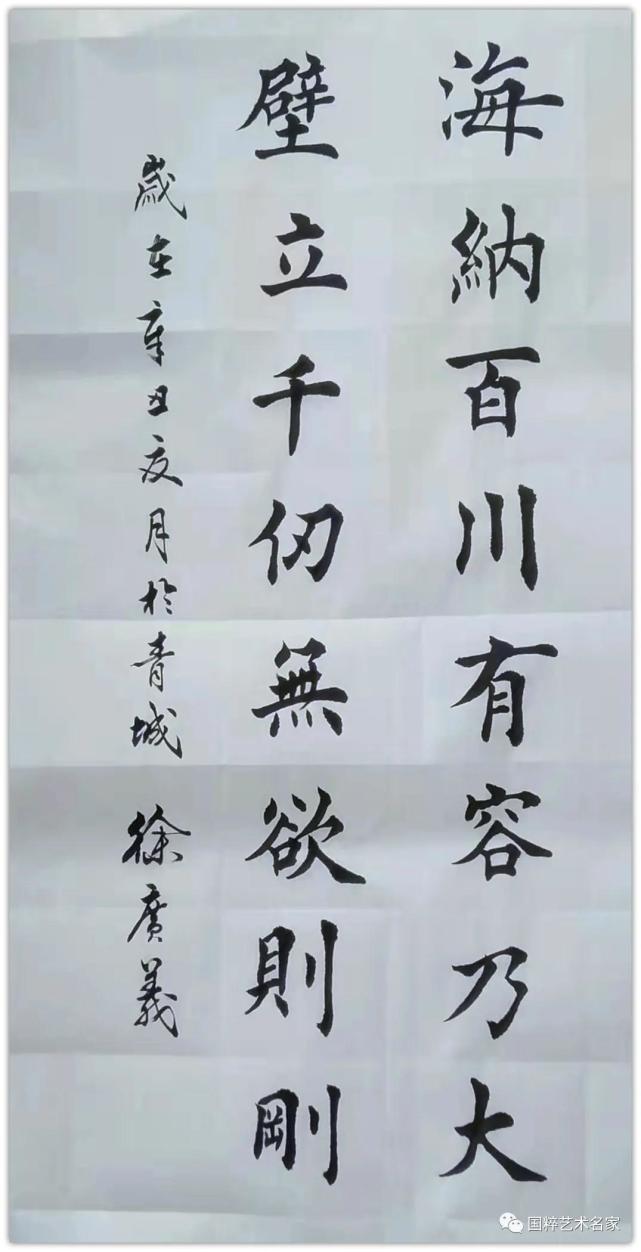 海納百川有容乃大
壁立千仞無欲則剛
歲在辛丑夏月於青城 徐廣義
国粹艺术名家